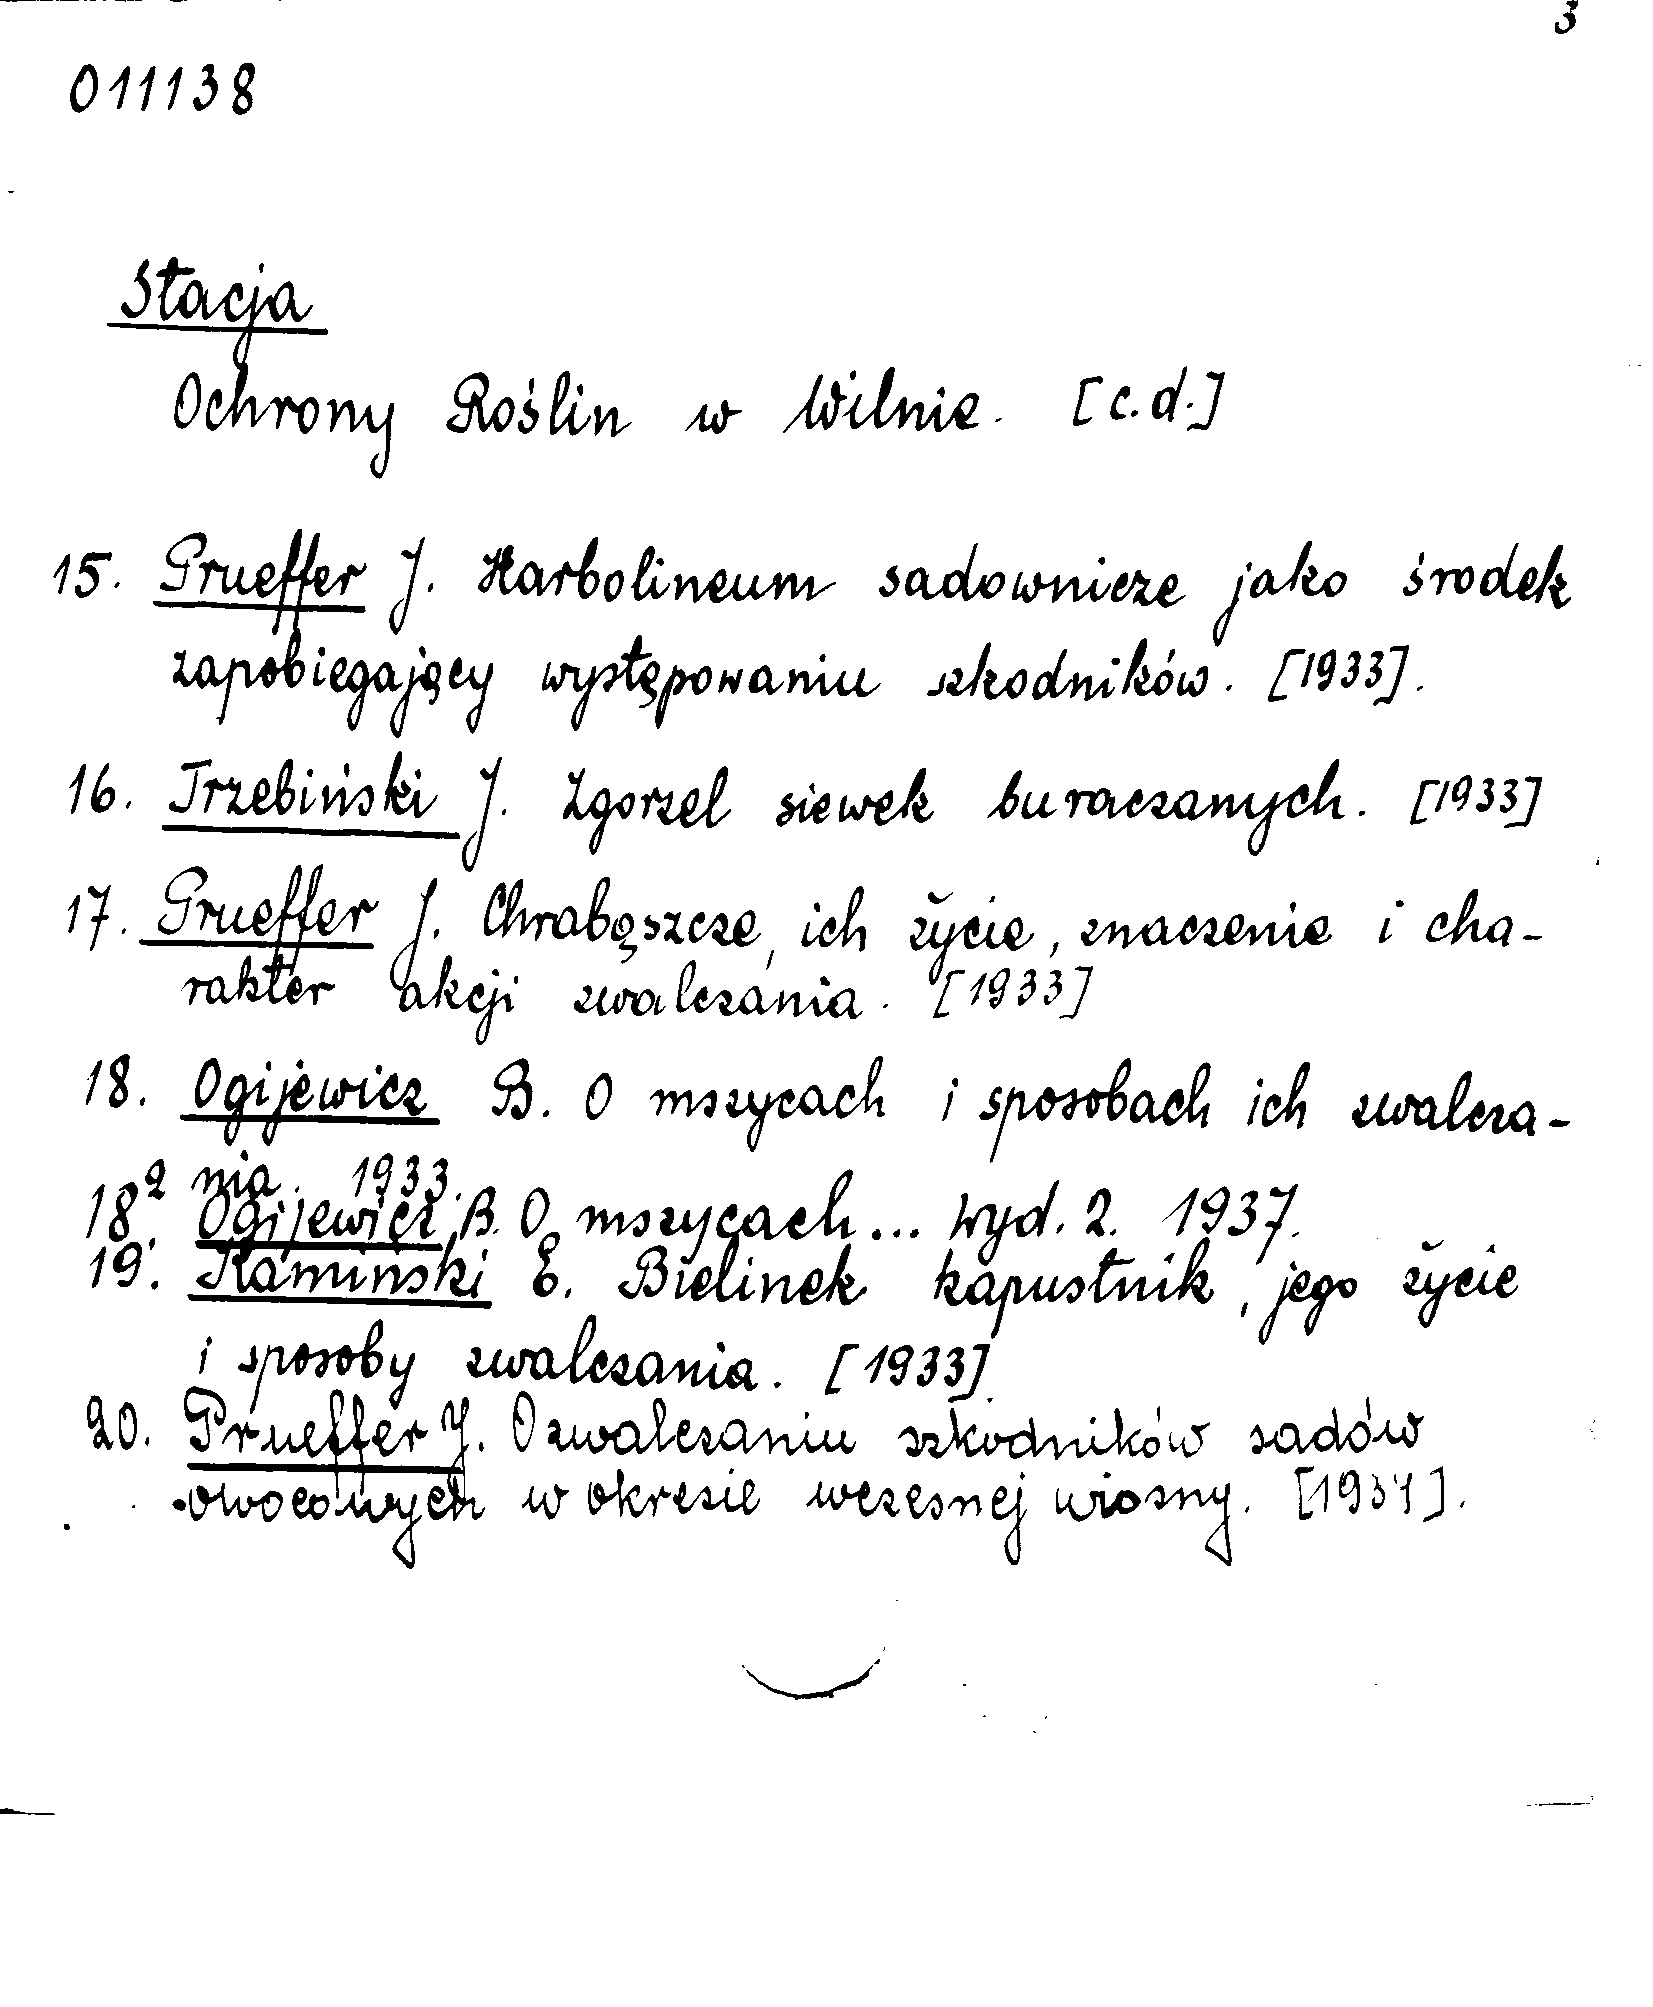 3
011138
Stacja
Ochrony Roślin w Wilnie. [c.d.]
15. Prueffer J. Karbolineum sadownicze jako środek
zapobiegający występowaniu szkodników. [1933].
16. Trzebiński J. Zgorzel siewek buraczanych. [1933]
17. Prueffer J. Chrabąszcze, ich życie, znaczenie i cha-
rakter akcji zwalczania. [1933]
18. Ogijewicz B. O mszycach i sposobach ich zwalcza-
nia. 1933.
18². Ogijewicz B. O mszycach... Wyd. 2. 1937.
19. Kamiński E. Bielinek kapustnik, jego życie
i sposoby zwalczania. [1933]
20. Prueffer J. O zwalczaniu szkodników sadów
owocowych w okresie wczesnej wiosny. [].